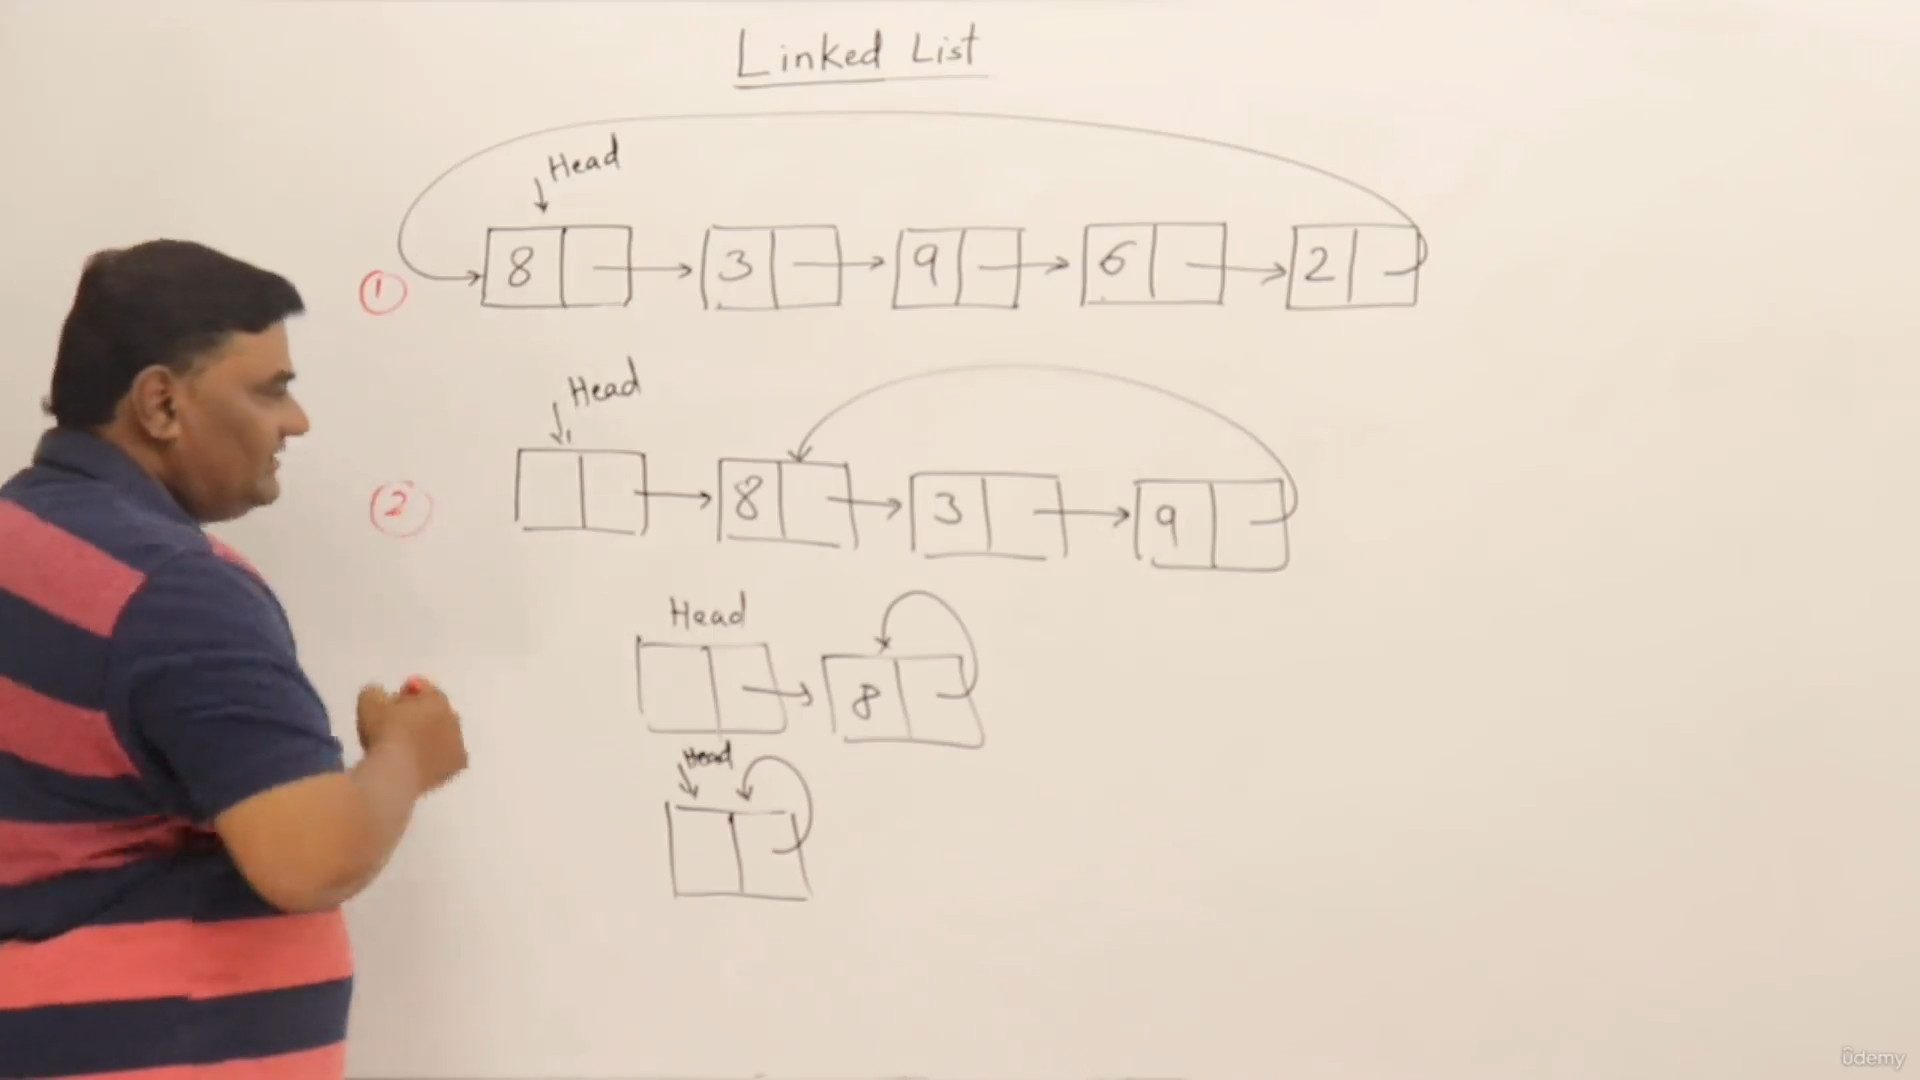 Linked List
Head
1
8 3 9 6 2
Head
2
8 3 9
Head
8
Head
ûdemy